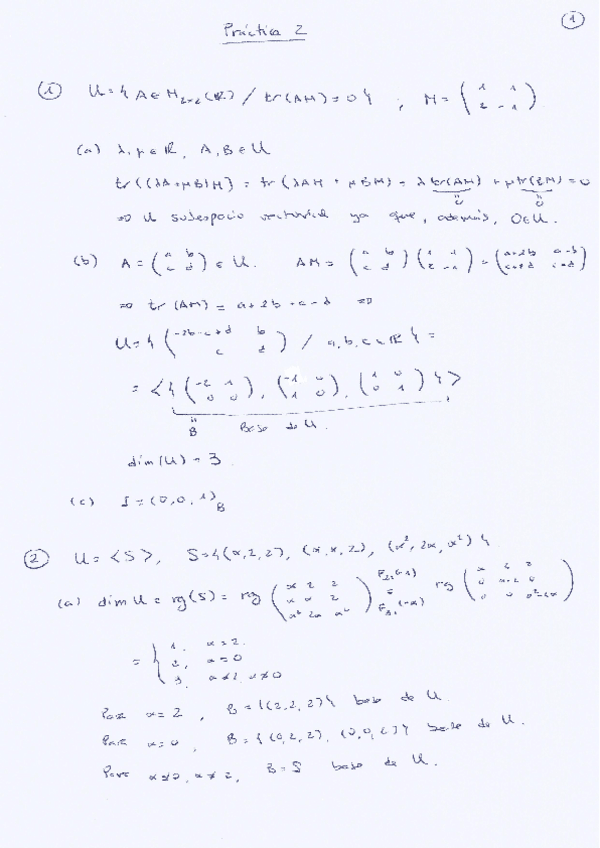 Práctica 2
1
① U = { A ∈ M₂ₓ₂(ℝ) / tr(AM) = 0 } ; M = ( 1 1 ; 2 -1 )
(a) λ, μ ∈ ℝ, A, B ∈ U
tr((λA+μB)M) = tr(λAM + μBM) = λ tr(AM) + μ tr(BM) = 0
⇒ U subespacio vectorial ya que, además, 0 ∈ U.
(b) A = ( a b ; c d ) ∈ U. AM = ( a b ; c d ) ( 1 1 ; 2 -1 ) = ( a+2b a-b ; c+2d c-d )
⇒ tr(AM) = a+2b+c-d ⇒
U = { ( -2b-c+d b ; c d ) / a, b, c ∈ ℝ } =
= < { ( -2 1 ; 0 0 ), ( -1 0 ; 1 0 ), ( 1 0 ; 0 1 ) } >
B Base de U.
dim(U) = 3.
(c) I = (0, 0, 1)_B
② U = <S>, S = { (α, 2, 2), (α, α, 2), (α², 2α, α²) }
(a) dim U = rg(S) = rg ( α 2 2 ; α α 2 ; α² 2α α² ) F₂₁(-1) = F₃₁(-α) rg ( α 2 2 ; 0 α-2 0 ; 0 0 α²-2α )
= { 1, α = 2
2, α = 0
3, α ≠ 2, α ≠ 0
Para α = 2, B = {(2, 2, 2)} base de U.
Para α = 0, B = {(0, 2, 2), (0, 0, 2)} base de U.
Para α ≠ 0, α ≠ 2, B = S base de U.